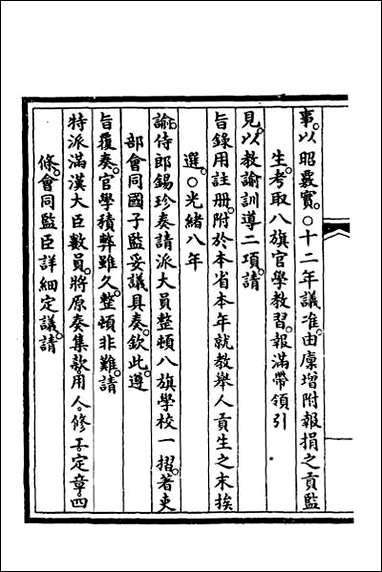 事。以昭覈實。○十二年議准。由廩增附報捐之貢監
生。考取八旗官學教習。報滿帶領引
見。以教諭訓導二項。請
旨錄用註册。附於本省本年就教舉人貢生之末挨
選。○光緒八年
諭。侍郎錫珍奏請派大員整頓八旗學校一摺。著吏
部會同國子監妥議具奏。欽此。遵
旨覆奏。官學積弊雖久。整頓非難。請
特派滿漢大臣數員。將原奏集款。用人。修工。定章。四
條。會同監臣詳細定議。請